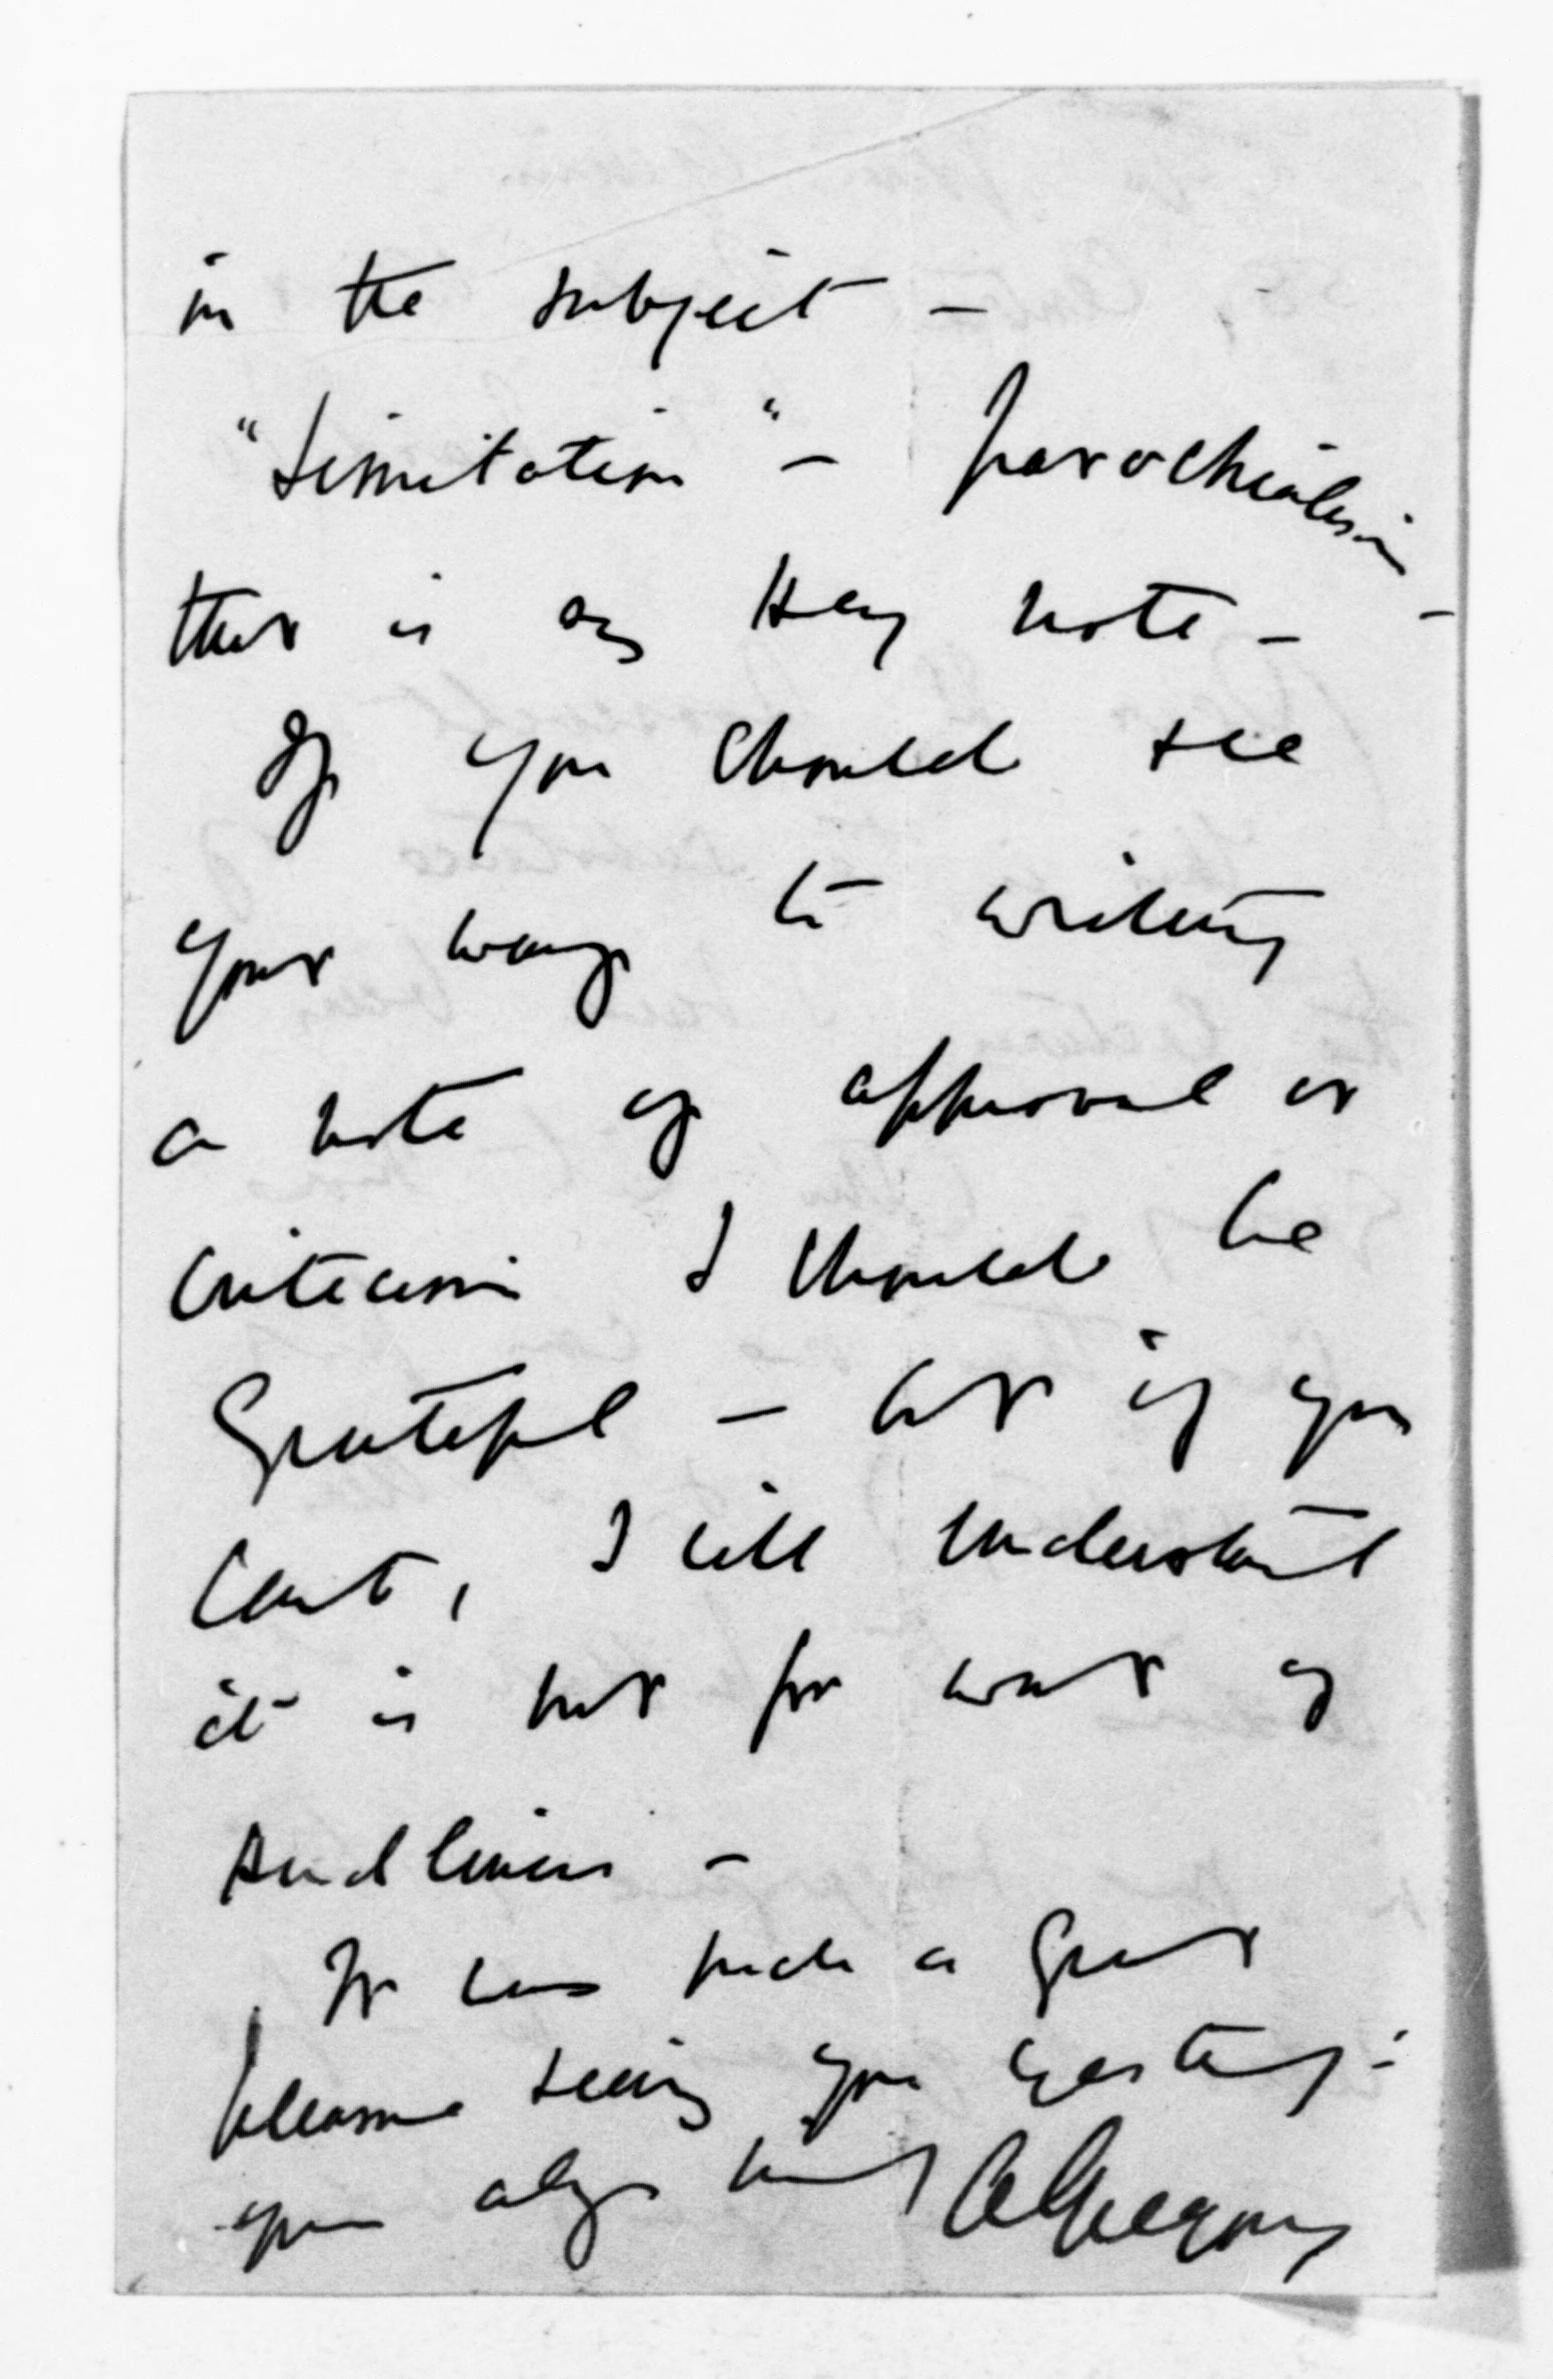 in the subject -
"Limitation" - parochialism -
that is my key note -
If you should see
your way to writing
a note of approval or
criticism I should be
grateful - but if you
cant, I will understand
it is not for want of
kindliness -
It was such a great
pleasure seeing you yesterdy -
yours alys AGregory